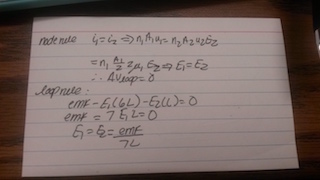 node rule i₁=i₂ ⇒ n₁A₁u₁=n₂A₂u₂E₂
=n₁ A₁/2 2μ₁ E₂ ⇒ E₁=E₂
∴ ΔVloop=0
loop rule:
emf - E₁(6L) - E₂(L)=0
emf = 7 E₁L=0
E₁=E₂= emf/7L